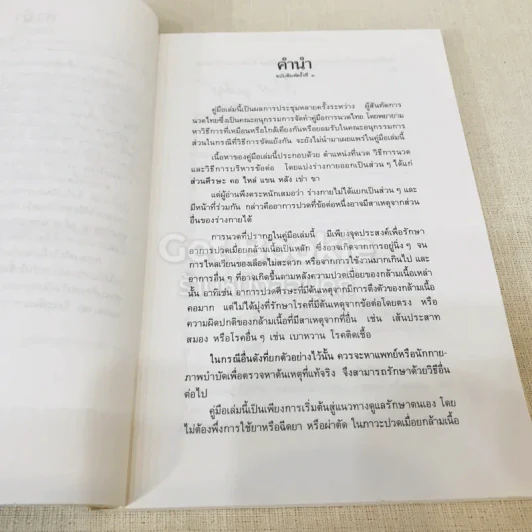 คำนำ
ฉบับพิมพ์ครั้งที่ ๑
คู่มือเล่มนี้เป็นผลการประชุมหลายครั้งระหว่าง ผู้สันทัดการ
นวดไทยซึ่งเป็นคณะอนุกรรมการจัดทำคู่มือการนวดไทย โดยพยายาม
หาวิธีการที่เหมือนหรือใกล้เคียงกันหรือยอมรับในคณะอนุกรรมการ
ส่วนในกรณีที่วิธีการขัดแย้งกัน จะยังไม่นำมาเผยแพร่ในคู่มือนี้
เนื้อหาของคู่มือเล่มนี้ประกอบด้วย ตำแหน่งที่นวด วิธีการนวด
และวิธีการบริหารข้อต่อ โดยแบ่งร่างกายออกเป็นส่วน ๆ ได้แก่
ส่วนศีรษะ คอ ไหล่ แขน หลัง เข่า ขา
แต่ผู้อ่านพึงตระหนักเสมอว่า ร่างกายไม่ได้แยกเป็นส่วน ๆ และ
มีหน้าที่ร่วมกัน กล่าวคืออาการปวดที่ข้อต่อหนึ่งอาจมีสาเหตุจากส่วน
อื่นของร่างกายได้
การนวดที่ปรากฏในคู่มือเล่มนี้ มีเพียงจุดประสงค์เพื่อรักษา
อาการปวดเมื่อยกล้ามเนื้อเป็นหลัก ซึ่งอาจเกิดจากการอยู่นิ่ง ๆ จน
การไหลเวียนของเลือดไม่สะดวก หรือจากการใช้งานมากเกินไป และ
อาการอื่น ๆ ที่อาจเกิดขึ้นตามหลังความปวดเมื่อยของกล้ามเนื้อเหล่า
นั้น อาทิเช่น อาการปวดศีรษะที่มีต้นเหตุจากมีการตึงตัวของกล้ามเนื้อ
คอมาก แต่ไม่ได้มุ่งที่รักษาโรคที่มีต้นเหตุจากข้อต่อโดยตรง หรือ
ความผิดปกติของกล้ามเนื้อที่มีสาเหตุจากที่อื่น เช่น เส้นประสาท
สมอง หรือโรคอื่น ๆ เช่น เบาหวาน โรคติดเชื้อ
ในกรณีอื่นดังที่ยกตัวอย่างไว้นั้น ควรจะหาแพทย์หรือนักกาย-
ภาพบำบัดเพื่อตรวจหาต้นเหตุที่แท้จริง จึงสามารถรักษาด้วยวิธีอื่น
ต่อไป
คู่มือเล่มนี้เป็นเพียงการเริ่มต้นสู่แนวทางดูแลรักษาตนเอง โดย
ไม่ต้องพึ่งการใช้ยาหรือฉีดยา หรือผ่าตัด ในภาวะปวดเมื่อยกล้ามเนื้อ